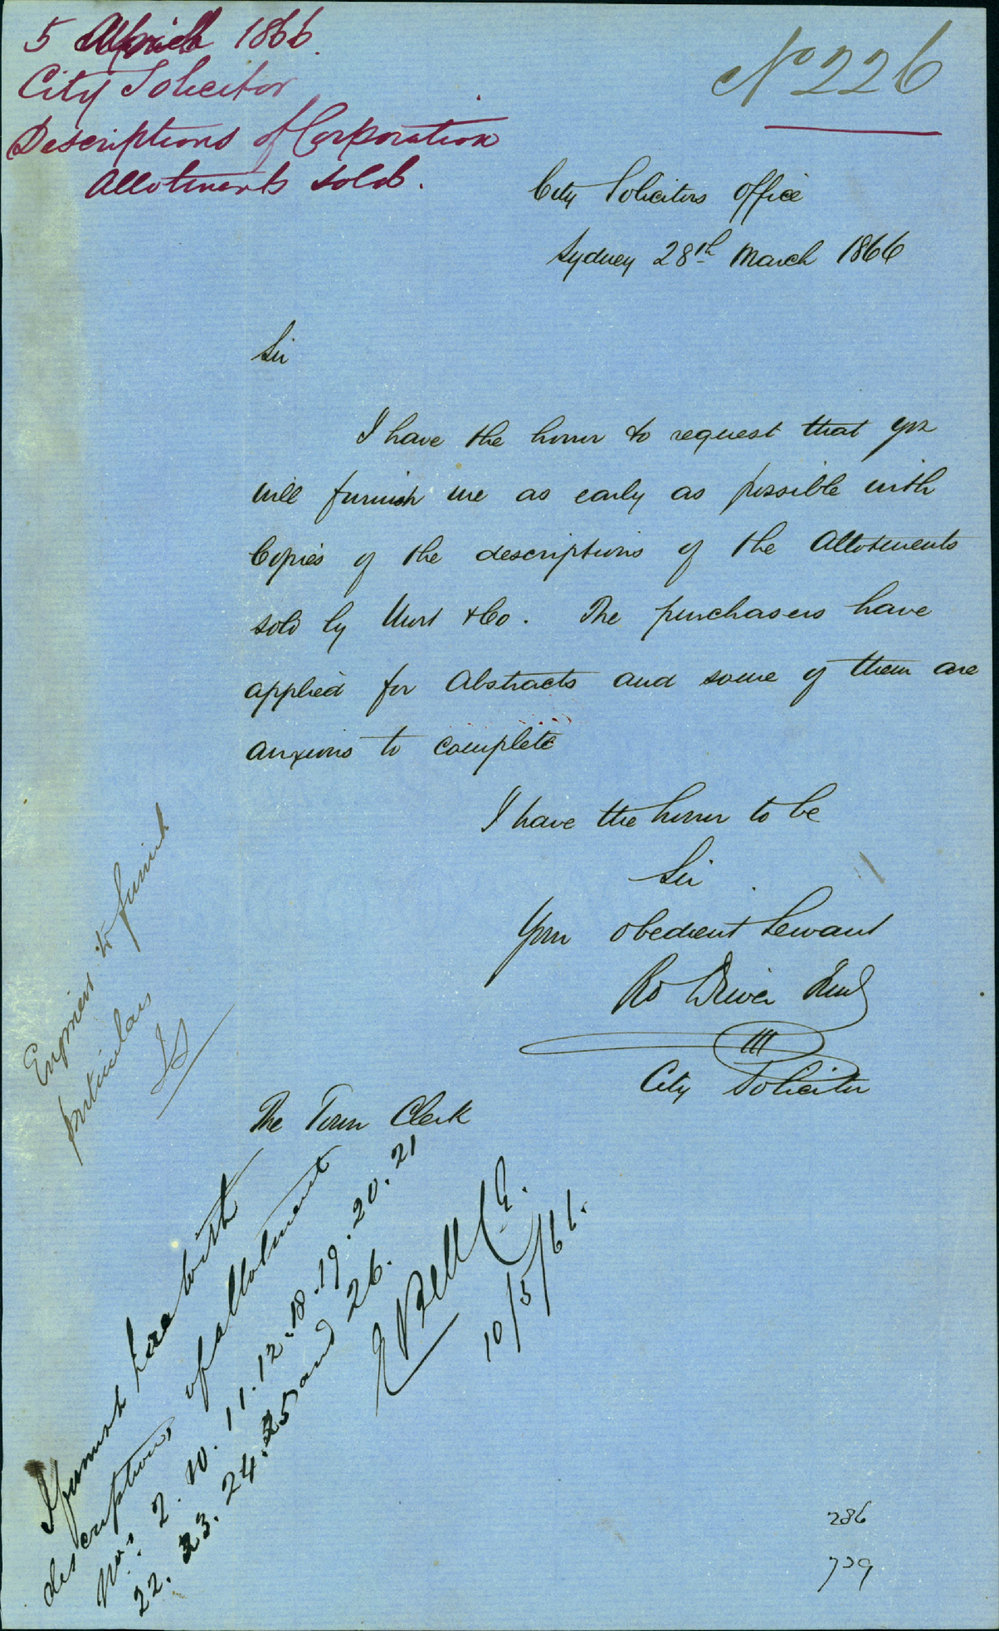 5 April 1866.
City Solicitor
Descriptions of Corporation
Allotments sold.
No 226
City Solicitors Office
Sydney 28th March 1866
Sir
I have the honor to request that you
will furnish me as early as possible with
Copies of the descriptions of the Allotments
sold by Mort & Co. The purchasers have
applied for Abstracts and some of them are
anxious to complete
I have the honor to be
Sir
Your obedient Servant
Ro Driver Junr
City Solicitor
The Town Clerk
Engineer to furnish
particulars
I furnish herewith
descriptions of allotment
Nos. 2. 10. 11. 12. 18. 19. 20. 21
22. 23. 24. 25 and 26.
E Bell C.E.
10/5/66.
286
739